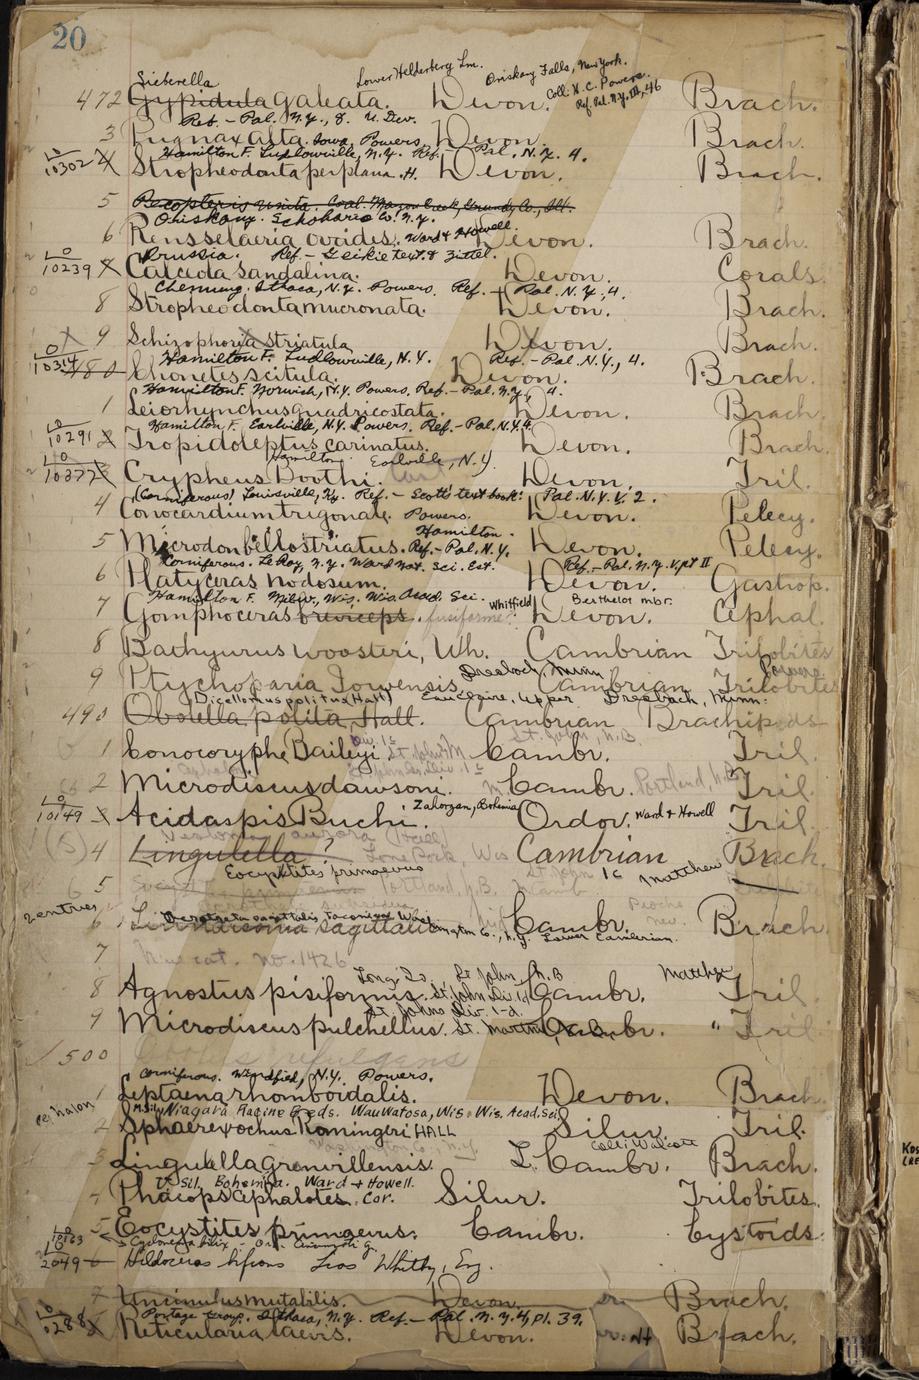 20
Sieberella Lower Helderberg Lm. Oriskany Falls, New York.
472 Gypidula galeata. Devon. Coll. N.C. Powers. Brach.
Ref. Pal. N.Y. III, 46
Ref. - Pal. N.Y., 8. U. Dev.
3 Pugnax alta. Iowa Powers Devon. Brach.
Hamilton F. Ludlowville, N.Y. Ref. Pal. N.Y. 4.
10302 Stropheodonta perplana. H. Devon. Brach.
5 Pecopteris unita. Coal. Mazon Creek, Grundy Co., Ill.
Oriskany. Schoharie Co. N.Y.
6 Rensselaeria ovoides. Ward & Howell. Devon. Brach.
Prussia. Ref. - Geikie text. & Zittel.
10239 Calceola Sandalina. Devon. Corals.
Chemung. Ithaca, N.Y. Powers. Ref. - Pal. N.Y., 4.
8 Stropheodonta mucronata. Devon. Brach.
9 Schizophoria Striatula Dev. Brach.
Hamilton F. Ludlowville, N.Y. Ref. - Pal. N.Y., 4.
10314 480 Chonetes scitula. Devon. Brach.
Hamilton F. Norwich, N.Y. Powers. Ref. - Pal. N.Y., 4.
1 Leiorhynchus quadricostata. Devon. Brach.
Hamilton, F. Earlville, N.Y. Powers. Ref. - Pal. N.Y. 4.
10291 Tropidoleptus carinatus. Devon. Brach
Hamilton. Earlville, N.Y.
10377 Crypheus Boothi. Devon. Tril.
(Corniferous) Louisville, Ky. Ref. - Scott text book. Pal. N.Y. V. 2.
4 Conocardium trigonale. Powers. Devon. Pelecy.
Hamilton.
5 Microdon bellostriatus. Ref. - Pal. N.Y. Devon. Pelecy.
Corniferous. LeRoy, N.Y. Ward Nat. Sci. Est. Ref. - Pal. N.Y. V, pt II
6 Platyceras nodosum. Devon. Gastrop.
Hamilton F. Milw., Wis. Wis Acad. Sci. Whitfield Berthelot mbr.
7 Gomphoceras breviceps. fusiforme Devon. Cephal.
8 Bathyurus Woosteri, Wh. Cambrian Trilobites
9 Ptychoparia Iowensis Dresbach, Minn Cambrian Trilobites
Powers
Dicellomus politus (Hall) Eau Claire, Upper Dresbach, Minn.
490 Obolella polita, Hall. Cambrian Brachipods
St. John, N.B.
1 Conocoryphe Baileyi. Div. 1c St. John Cambr. Tril.
2 Microdiscus dawsoni. Cambr. Portland, N.B. Tril
10149 Acidaspis Buchi. Zahorzan, Bohemia Ordov. Ward & Howell Tril.
(S) 4 Lingulella ? Lone Rock, Wis Cambrian Brach.
Eocystites primaevus St. John 1c Matthew
5 Portland, N.B.
2 entries
6 sagittalis Co., N.Y. Lower Cambrian. Cambr. Brach.
7 New cat. no. 1426
St. John, N.B Matthew
8 Agnostus pisiformis. St. John Div. 1d Cambr. Tril.
St. Johns Div. 1-d.
9 Microdiscus pulchellus. St. Martins, N.B. Cambr. " Tril
500 Obolus refulgens
Corniferous. N.Y. Powers.
1 Leptaena rhomboidalis. Devon. Brach
M. Sil. Niagara Racine Beds. Wauwatosa, Wis. Wis. Acad. Sci.
2 Sphaerexochus Romingeri HALL Silur. Tril.
3 Lingulella granvillensis. L. Cambr. Coll: Walcott Brach.
U. Sil. Bohemia. Ward & Howell.
4 Phacops cephalotes. Cor. Silur. Trilobites.
5 Eocystites primaevus. Cambr. Cystoids.
10163 Cyclonema bilix Ord. Cincinnati g.
2049 6 Hildoceras bifrons Lias Whitby, Eng.
7 Uncinulus mutabilis. Devon. Brach.
Portage Group. Ithaca, N.Y. Ref. - Pal. N.Y. 4, Pl. 39.
10288 Reticularia laevis. Devon. Brach.